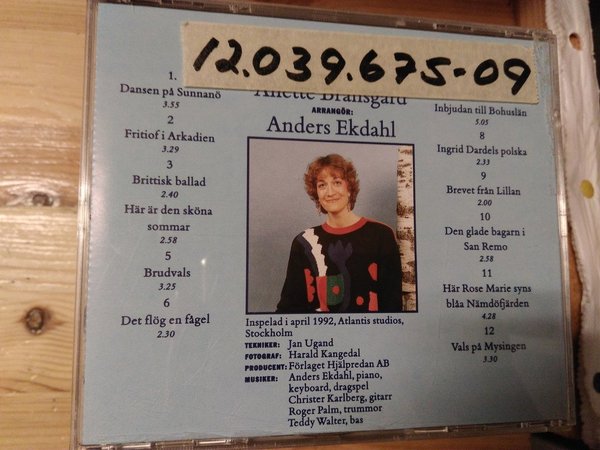 12.039.675-09
1.
Dansen på Sunnanö
3.55
2
Fritiof i Arkadien
3.29
3
Brittisk ballad
2.40
4
Här är den sköna
sommar
2.58
5
Brudvals
3.25
6
Det flög en fågel
2.30
ARRANGÖR:
Anders Ekdahl
Inspelad i april 1992, Atlantis studios,
Stockholm
TEKNIKER: Jan Ugand
FOTOGRAF: Harald Kangedal
PRODUCENT: Förlaget Hjälpredan AB
MUSIKER: Anders Ekdahl, piano,
keyboard, dragspel
Christer Karlberg, gitarr
Roger Palm, trummor
Teddy Walter, bas
Inbjudan till Bohuslän
5.05
8
Ingrid Dardels polska
2.33
9
Brevet från Lillan
2.00
10
Den glade bagarn i
San Remo
2.58
11
Här Rose Marie syns
blåa Nämdöfjärden
4.28
12
Vals på Mysingen
3.30